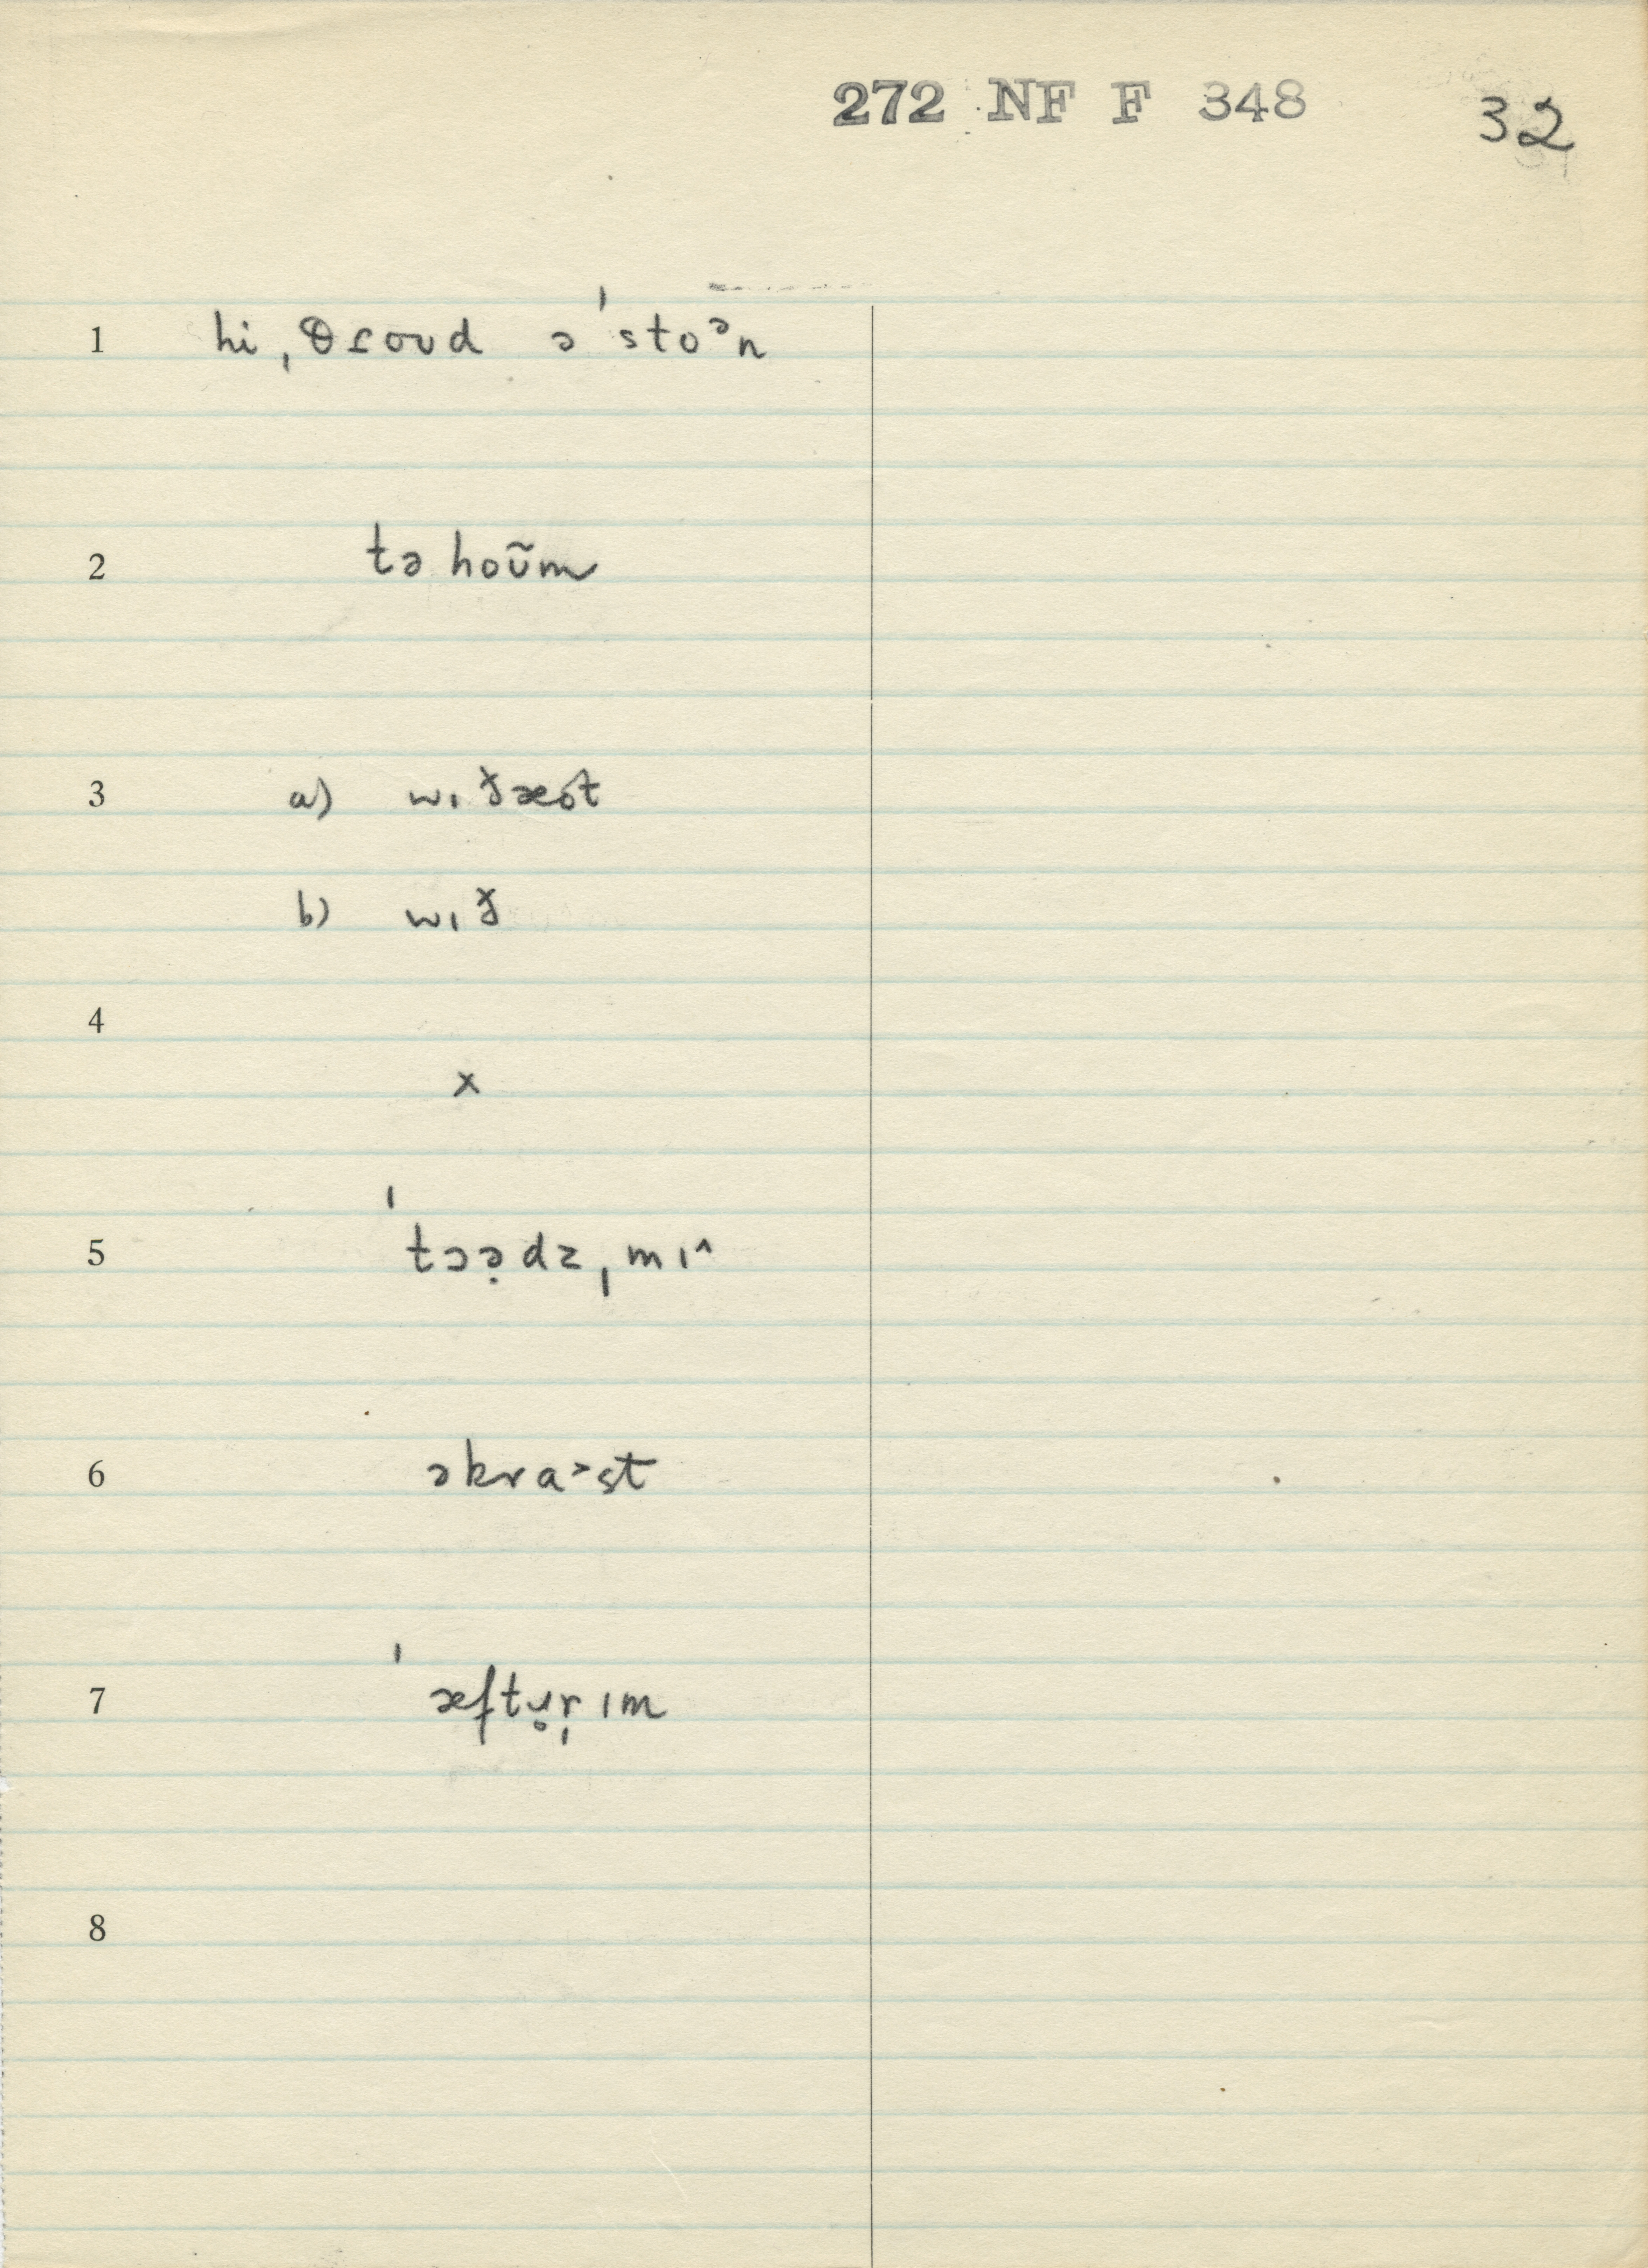 272 NF F 348 32
1 hi ˌθɾoʊd ə ˈstoᵊn
2 tə hoʊ̃m
3 a) wɪðæo̯t
b) wɪð
4
x
5 ˈtɔə̣dz ˌmɪ^
6 əkrɑ˃st
7 ˈæftʊ̥r̩ ɪm
8